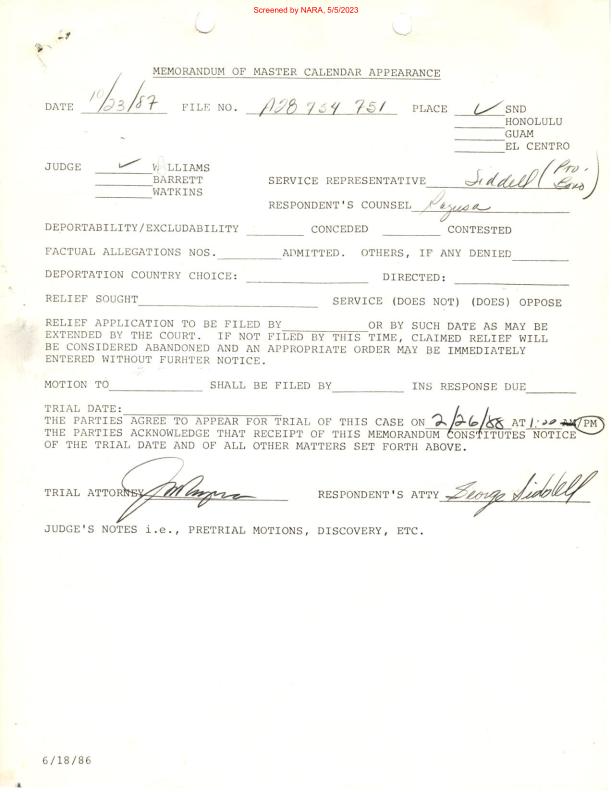 Screened by NARA, 5/5/2023
MEMORANDUM OF MASTER CALENDAR APPEARANCE
DATE 10/23/87 FILE NO. A28 734 751 PLACE ✓ SND
HONOLULU
GUAM
EL CENTRO
JUDGE ✓ WILLIAMS
BARRETT
WATKINS
SERVICE REPRESENTATIVE Siddell (Pro-Bono)
RESPONDENT'S COUNSEL Ragusa
DEPORTABILITY/EXCLUDABILITY ________ CONCEDED ________ CONTESTED
FACTUAL ALLEGATIONS NOS.________ADMITTED. OTHERS, IF ANY DENIED________
DEPORTATION COUNTRY CHOICE: ________ DIRECTED: ________
RELIEF SOUGHT________ SERVICE (DOES NOT) (DOES) OPPOSE
RELIEF APPLICATION TO BE FILED BY________OR BY SUCH DATE AS MAY BE
EXTENDED BY THE COURT. IF NOT FILED BY THIS TIME, CLAIMED RELIEF WILL
BE CONSIDERED ABANDONED AND AN APPROPRIATE ORDER MAY BE IMMEDIATELY
ENTERED WITHOUT FURHTER NOTICE.
MOTION TO________ SHALL BE FILED BY________ INS RESPONSE DUE________
TRIAL DATE:________
THE PARTIES AGREE TO APPEAR FOR TRIAL OF THIS CASE ON 2/26/88 AT 1:00 AM/PM
THE PARTIES ACKNOWLEDGE THAT RECEIPT OF THIS MEMORANDUM CONSTITUTES NOTICE
OF THE TRIAL DATE AND OF ALL OTHER MATTERS SET FORTH ABOVE.
TRIAL ATTORNEY RESPONDENT'S ATTY George Siddell
JUDGE'S NOTES i.e., PRETRIAL MOTIONS, DISCOVERY, ETC.
6/18/86